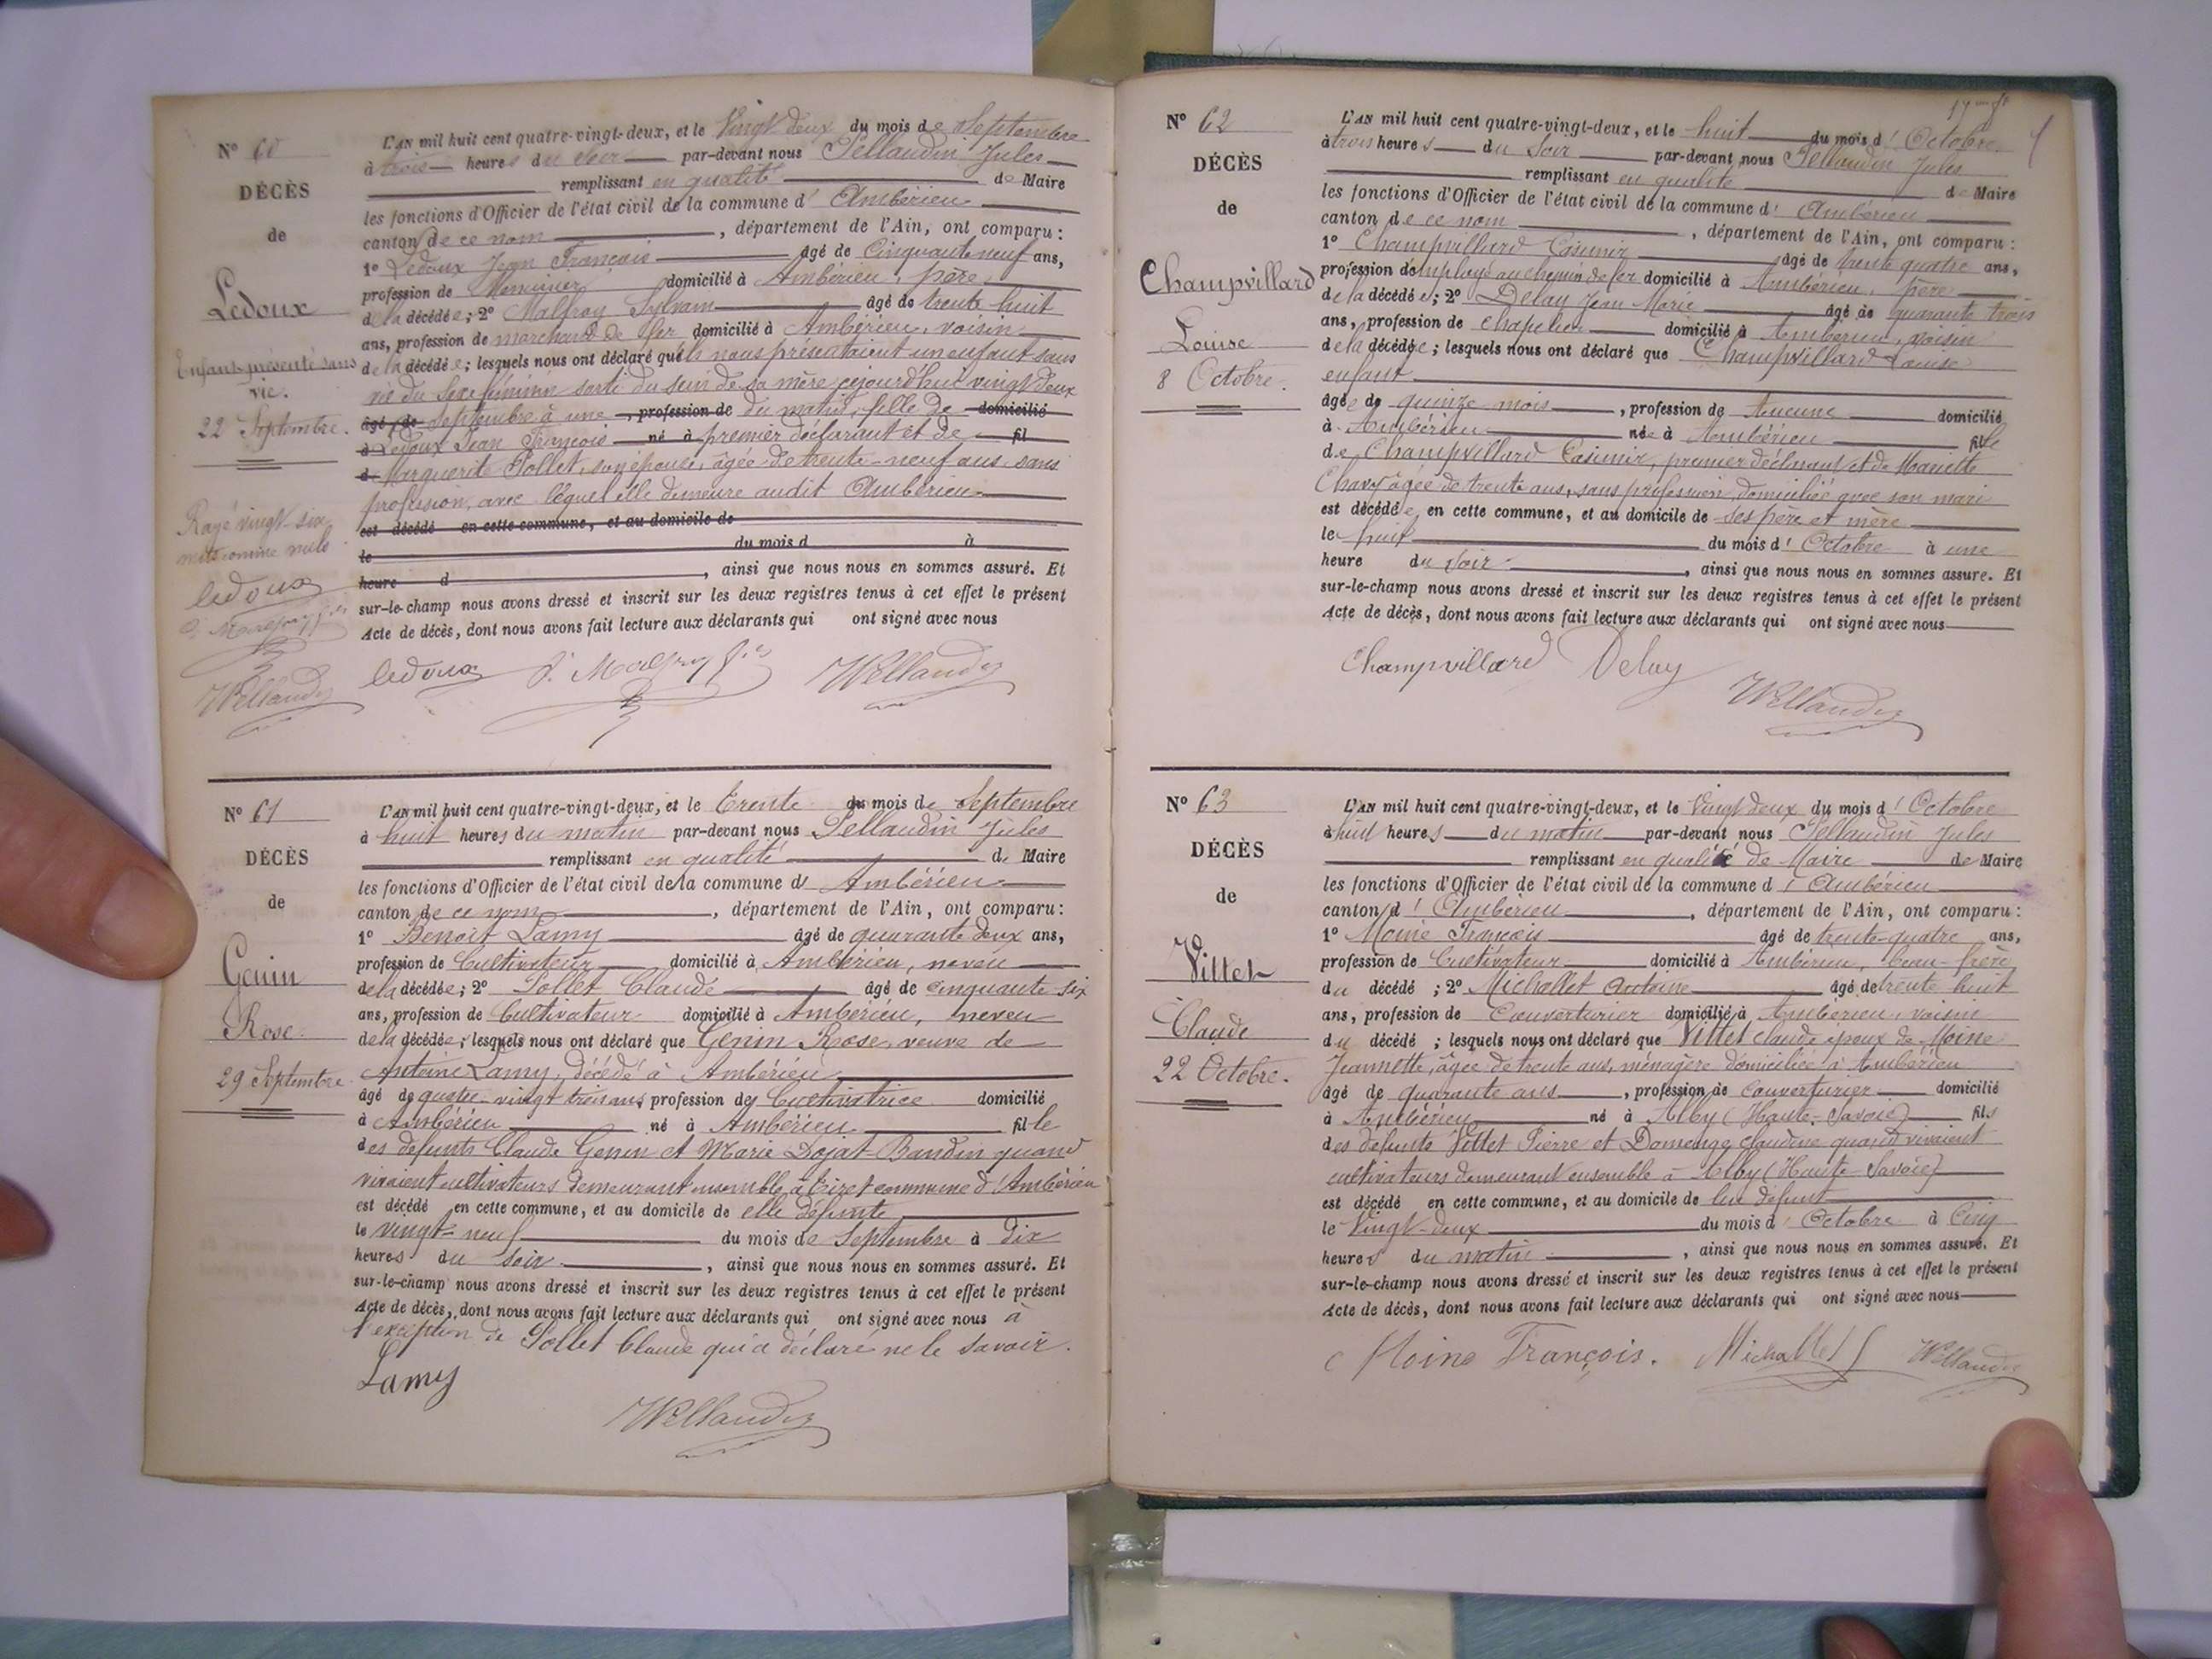 N° 60
DÉCÈS
de
Ledoux
Enfant présenté sans
vie.
22 Septembre.
Rayé vingt-six
mots comme nuls
ledoux
Pellaudin
L'AN mil huit cent quatre-vingt-deux, et le Vingt deux du mois de Septembre
à trois heures du soir par-devant nous Pellaudin Jules
remplissant en qualité de Maire
les fonctions d'Officier de l'état civil de la commune d' Ambérieu
canton de ce nom, département de l'Ain, ont comparu :
1° Ledoux Jean François âgé de Cinquante neuf ans,
profession de Menuisier domicilié à Ambérieu, père
de la décédée; 2° Malfroy Sylvain âgé de trente huit
ans, profession de marchand de fer domicilié à Ambérieu, voisin
de la décédée; lesquels nous ont déclaré qu'ils nous présentaient un enfant sans
vie du sexe féminin sorti du sein de sa mère cejourd'hui vingt deux
âgé de Septembre à une, profession de du matin, fille de domicilié
à Ledoux Jean François né à premier déclarant et de fil
d Marguerite Pollet, son épouse, âgée de trente-neuf ans, sans
profession, avec lequel elle demeure audit Ambérieu
est décédé en cette commune, et au domicile de
le du mois d à
heure d, ainsi que nous nous en sommes assuré. Et
sur-le-champ nous avons dressé et inscrit sur les deux registres tenus à cet effet le présent
Acte de décès, dont nous avons fait lecture aux déclarants qui ont signé avec nous
ledoux S. Malfroy fils Pellaudin
N° 61
DÉCÈS
de
Genin
Rose
29 Septembre
L'AN mil huit cent quatre-vingt-deux, et le Trente du mois de Septembre
à huit heures du matin par-devant nous Pellaudin Jules
remplissant en qualité de Maire
les fonctions d'Officier de l'état civil de la commune d' Ambérieu
canton de ce nom, département de l'Ain, ont comparu :
1° Benoît Lamy âgé de quarante deux ans,
profession de Cultivateur domicilié à Ambérieu, neveu
de la décédée; 2° Pollet Claude âgé de cinquante six
ans, profession de Cultivateur domicilié à Ambérieu, neveu
de la décédée; lesquels nous ont déclaré que Genin Rose, veuve de
Antoine Lamy, décédé à Ambérieu
âgé de quatre-vingt treis ans, profession de Cultivatrice domicilié
à Ambérieu né à Ambérieu fille
des defunts Claude Genin et Marie Dojat-Bandin quand
vivaient cultivateurs demeurant ensemble à Tiret commune d'Ambérieu
est décédé en cette commune, et au domicile de elle défunte
le vingt-neuf du mois de Septembre à Dix
heures du soir, ainsi que nous nous en sommes assuré. Et
sur-le-champ nous avons dressé et inscrit sur les deux registres tenus à cet effet le présent
Acte de décès, dont nous avons fait lecture aux déclarants qui ont signé avec nous à
l'exception de Pollet Claude qui a déclaré ne le savoir.
Lamy
Pellaudin
17
N° 62
DÉCÈS
de
Champvillard
Louise
8 Octobre.
L'AN mil huit cent quatre-vingt-deux, et le huit du mois d' Octobre
à trois heures du Soir par-devant nous Pellaudin Jules
remplissant en qualité de Maire
les fonctions d'Officier de l'état civil de la commune d' Ambérieu
canton de ce nom, département de l'Ain, ont comparu :
1° Champvillard Casimir âgé de trente quatre ans,
profession d'employé au chemin de fer domicilié à Ambérieu, père
de la décédée; 2° Delay Jean Marie âgé de quarante trois
ans, profession de chapelier domicilié à Ambérieu, voisin
de la décédée; lesquels nous ont déclaré que Champvillard Louise
enfant
âgée de quinze mois, profession de Aucune domicilié
à Ambérieu née à Ambérieu fille
de Champvillard Casimir, premier déclarant et de Mariette
Chavy âgée de trente ans, sans profession, domiciliée avec son mari
est décédée en cette commune, et au domicile de ses père et mère
le huit du mois d' Octobre à une
heure du Soir, ainsi que nous nous en sommes assuré. Et
sur-le-champ nous avons dressé et inscrit sur les deux registres tenus à cet effet le présent
Acte de décès, dont nous avons fait lecture aux déclarants qui ont signé avec nous
Champvillard Delay
Pellaudin
N° 63
DÉCÈS
de
Vittet
Claude
22 Octobre.
L'AN mil huit cent quatre-vingt-deux, et le Vingt deux du mois d' Octobre
à huit heures du matin par-devant nous Pellaudin Jules
remplissant en qualité de Maire de Maire
les fonctions d'Officier de l'état civil de la commune d' Ambérieu
canton d' Ambérieu, département de l'Ain, ont comparu :
1° Moine François âgé de trente-quatre ans,
profession de Cultivateur domicilié à Ambérieu, beau-frère
du décédé ; 2° Michallet Antoine âgé de trente huit
ans, profession de Couverturier domicilié à Ambérieu, voisin
du décédé ; lesquels nous ont déclaré que Vittet Claude époux de Moine
Jeannette, âgée de trente ans, ménagère domiciliée à Ambérieu
âgé de quarante ans, profession de couverturier domicilié
à Ambérieu né à Alby (Haute-Savoie) fils
des défunts Vittet Pierre et Domenge Claudine quand vivaient
cultivateurs demeurant ensemble à Alby (Haute-Savoie)
est décédé en cette commune, et au domicile de lui défunt
le Vingt-deux du mois d' Octobre à Cinq
heures du matin, ainsi que nous nous en sommes assuré. Et
sur-le-champ nous avons dressé et inscrit sur les deux registres tenus à cet effet le présent
Acte de décès, dont nous avons fait lecture aux déclarants qui ont signé avec nous
Moine François. Michallet Pellaudin